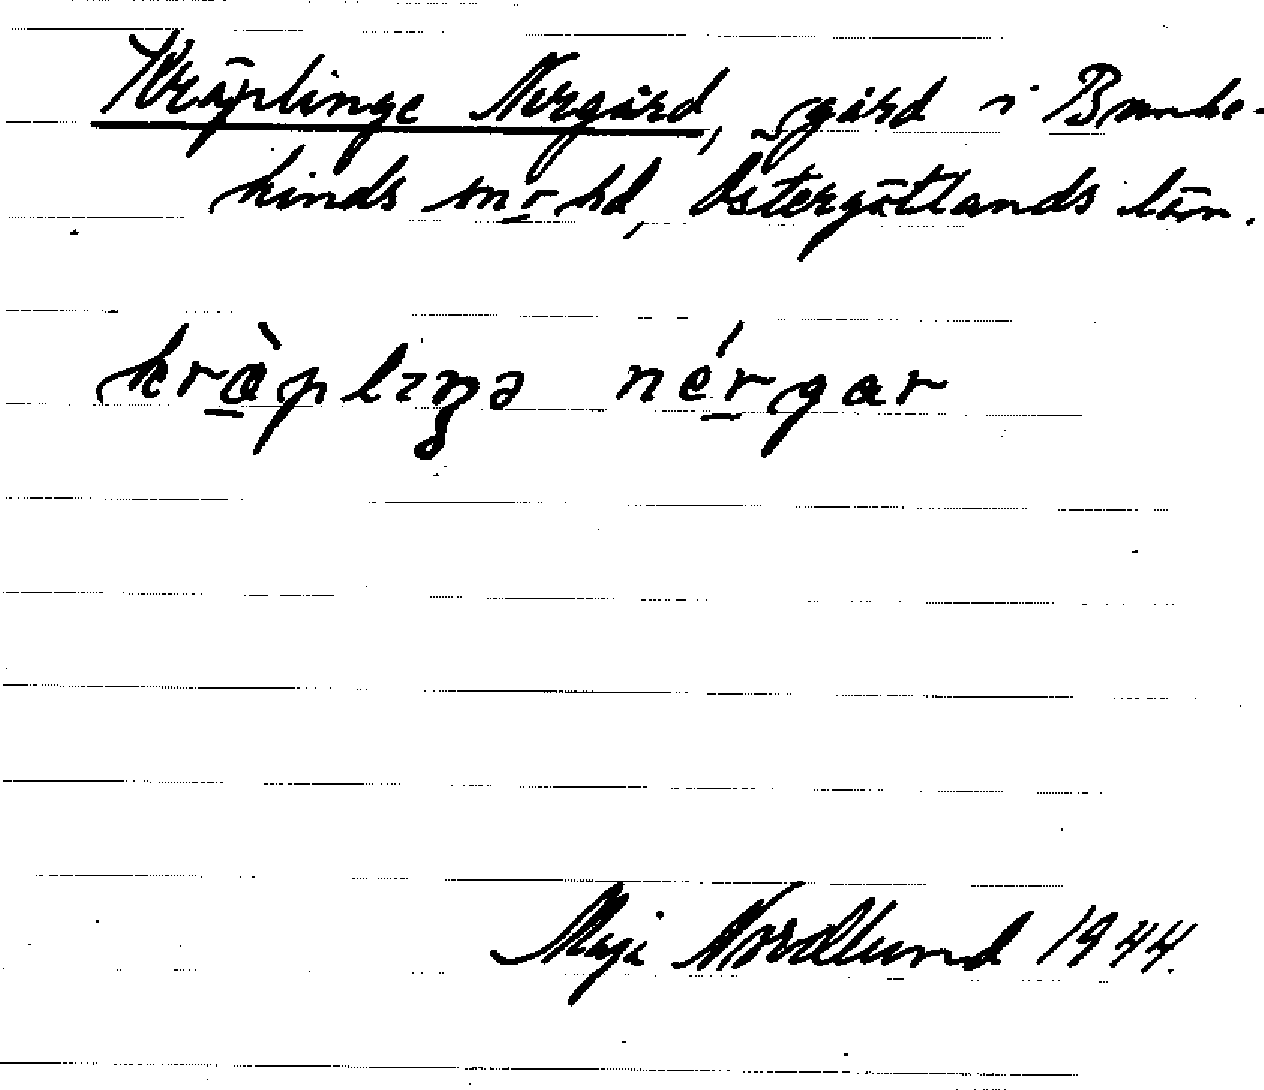 Kräplinge Norgård, gård i Banke-
kinds sn o hd, Östergötlands län.
kräplıŋə nérgar
Maja Nordlund 1944.